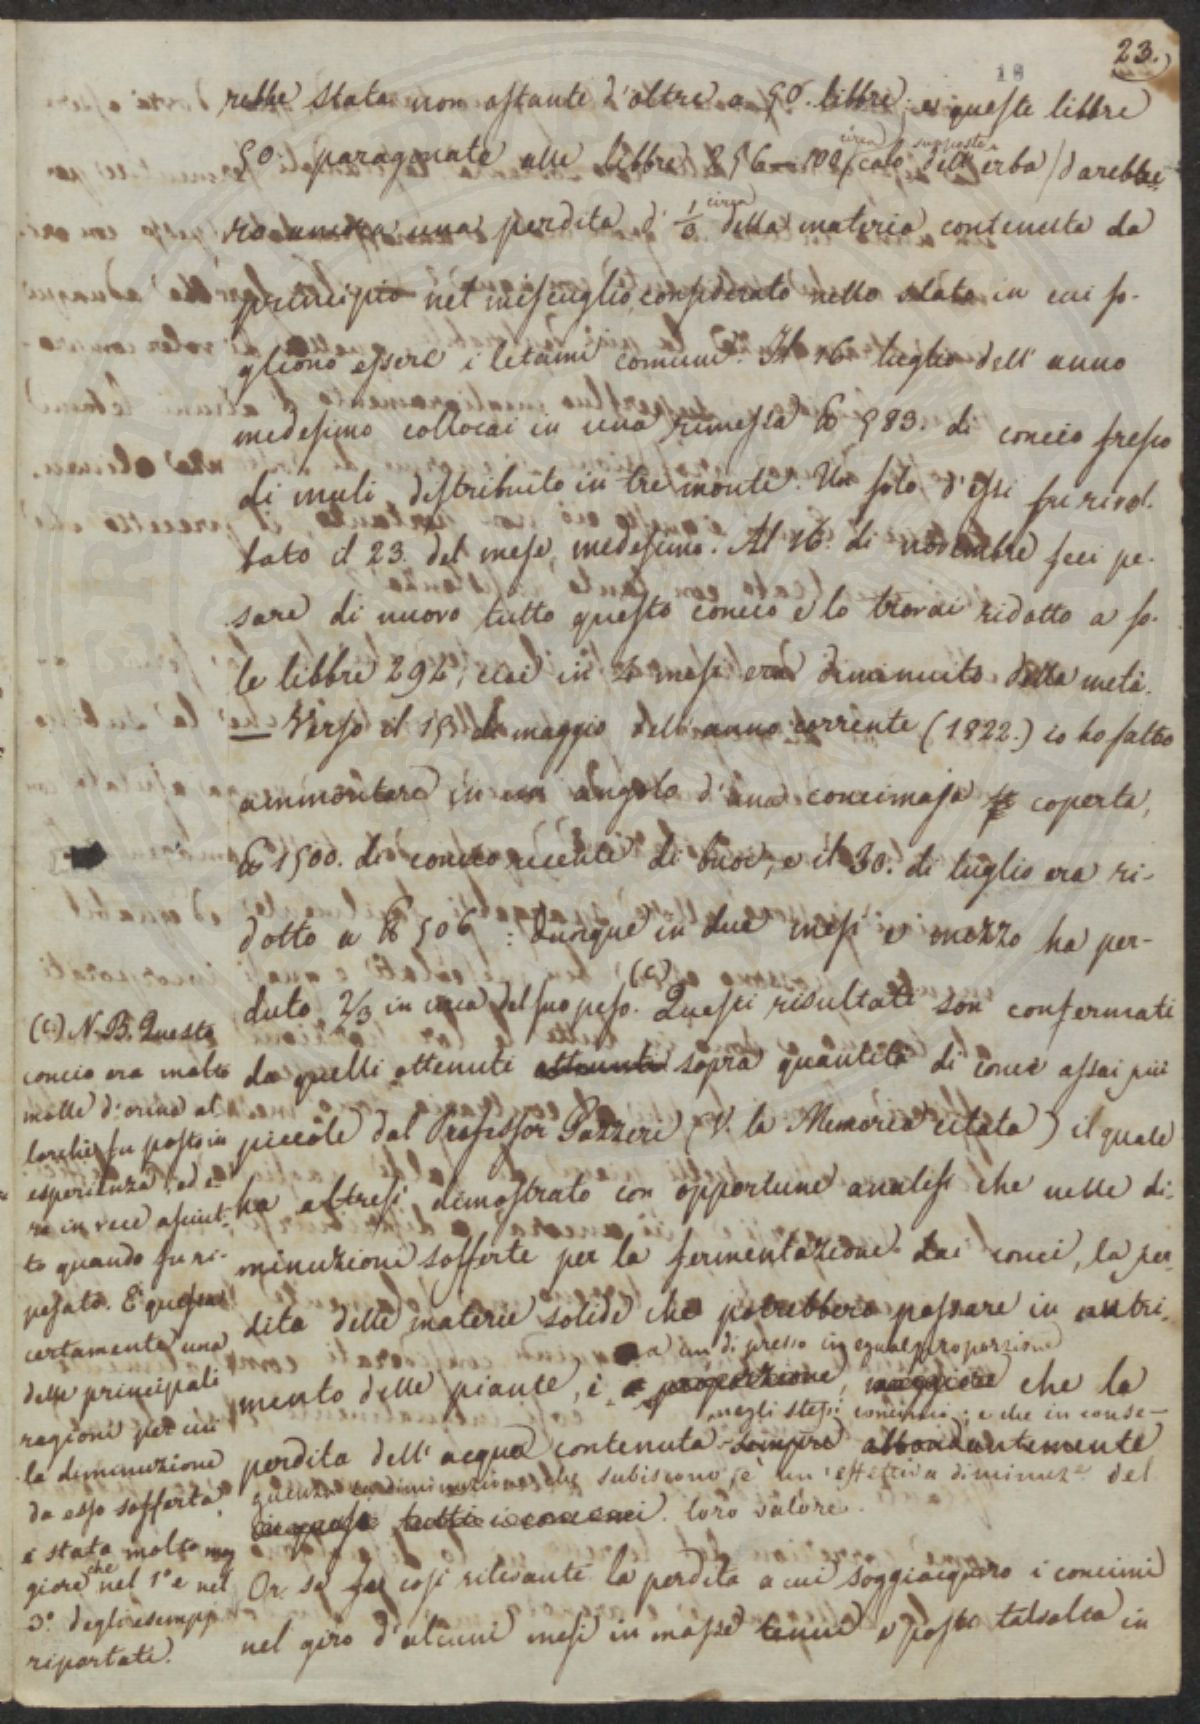 23.
18
rebbe stata non ostante d'oltre a 50. libbre; e queste libbre
circa supposto
50 paragonate alle libbre 256 (calo dell'erba) darebbe-
circa
ro ancora una perdita d' 1/6 della materia contenuta da
principio nel miscuglio, considerato nello stato in cui so-
gliono essere i letami comuni. Il 16 luglio dell'anno
medesimo collocai in una rimessa ℔ 583. di concio fresco
di muli distribuito in tre monti. Un solo d'essi fu rivol-
tato il 23. del mese medesimo. Al 16. di novembre feci pe-
sare di nuovo tutto questo concio e lo trovai ridotto a so-
le libbre 292, cioè in 4 mesi era diminuito della metà.
— Verso il 15 di maggio dell'anno corrente (1822.) io ho fatto
ammontare in un angolo d'una concimaja coperta,
℔ 1500. di concio recente di buoi, e il 30. di luglio era ri-
dotto a ℔ 506: dunque in due mesi e mezzo ha per-
(c)
duto 2/3 in circa del suo peso. Questi risultati son confermati
da quelli ottenuti ottenuti sopra quantità di conci assai più
piccole dal Professor Gazzeri (V. la Memoria citata) il quale
ha altresì dimostrato con opportune analisi che nelle di-
minuzioni sofferte per la fermentazione dai conci, la per-
dita delle materie solide che potrebbero passare in nutri-
a un di presso in egual proporzione
mento delle piante, è a proporzione maggiore che la
negli stessi concimi; e che in conse-
perdita dell'acqua contenuta sempre abbondantemente
guenza la diminuzione che subiscono, è un'effettiva diminuz.e del
in quasi tutti i concimi. loro valore.
Or se fu così rilevante la perdita a cui soggiacquero i concimi
nel giro d'alcuni mesi in masse tenui e poste talvolta in
(c) N.B. Questo
concio era molto
molle d'orina al-
lorchè fu posto in
esperienza, ed e-
ra in vece asciut-
to quando fu ri-
pesato. E questa
certamente una
delle principali
ragioni per cui
la diminuzione
da esso sofferta
è stata molto mag
giore che nel 1° e nel
3° degli esempj
riportati.